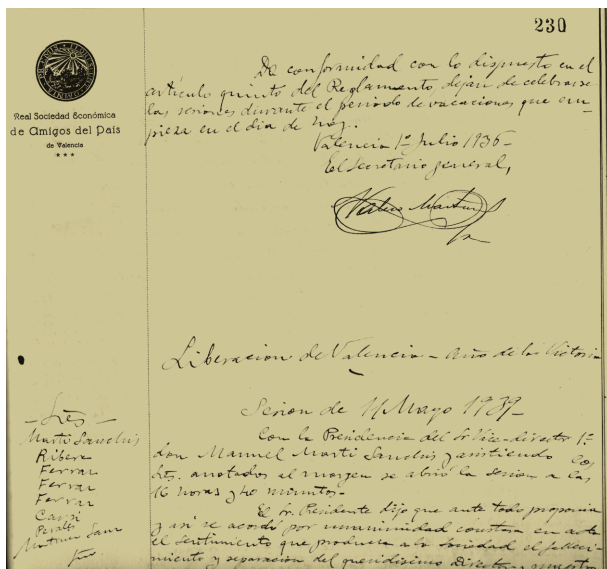 230
Real Sociedad Económica
de Amigos del País
de Valencia
De conformidad con lo dispuesto en el
artículo quinto del Reglamento, dejan de celebrarse
las sesiones durante el periodo de vacaciones que em-
pieza en el día de hoy.
Valencia 1º Julio 1936-
El Secretario general,
Liberacion de Valencia - Año de la Victoria
Sesion de 11 Mayo 1939-
Sres
Martí Sanchis
Ribera
Ferrar
Ferrar
Ferrar
Carsi
Peralts
Con la Presidencia del Sr. Vice-director 1º
don Manuel Martí Sanchis y asistiendo los
Srs. anotados al margen se abrió la sesion a las
16 horas y 40 minutos-
El Sr. Presidente dijo que ante todo proponia
y así se acordó por unanimidad constara en acta
el sentimiento que produce a la Sociedad el falleci-
miento y separación del queridísimo Director